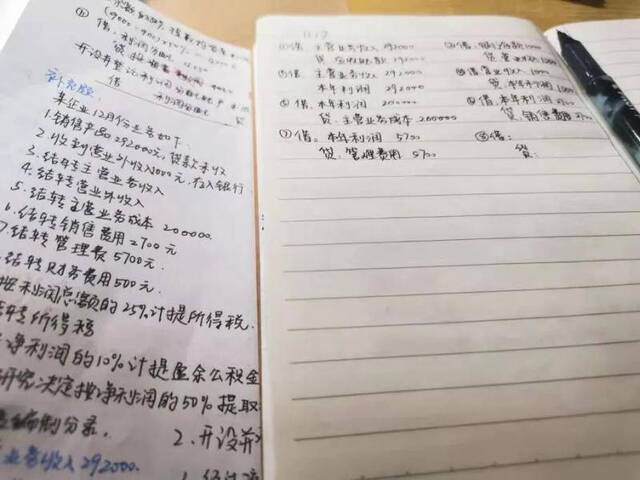 补充题
某企业12月份业务如下
1.销售产品292000元,货款未收
2.收到营业外收入1000元,存入银行
3.结转主营业务收入
4.结转营业外收入
5.结转主营业务成本 200000.
6.结转销售费用2700元
7.结转管理费5700元.
结转财务费用500元.
按利润总额的25%计提所得税.
结转所得税
净利润的10%计提盈余公积金
研究决定按净利润的50%提取
编制分录.
2.开设并
业务收入292000.
11.17
①借:主营业务收入 292000
贷:应收账款 292000
②借:银行存款 1000
贷:营业外收入 1000
③借:主营业务收入 292000
本年利润 292000
④借:营业外收入 1000
贷:本年利润 1000
⑤借:本年利润 200000
贷:主营业务成本 200000
⑥借:本年利润 2700
贷:销售费用 2700
⑦借:本年利润 5700
贷:管理费用 5700
⑧借:
贷: